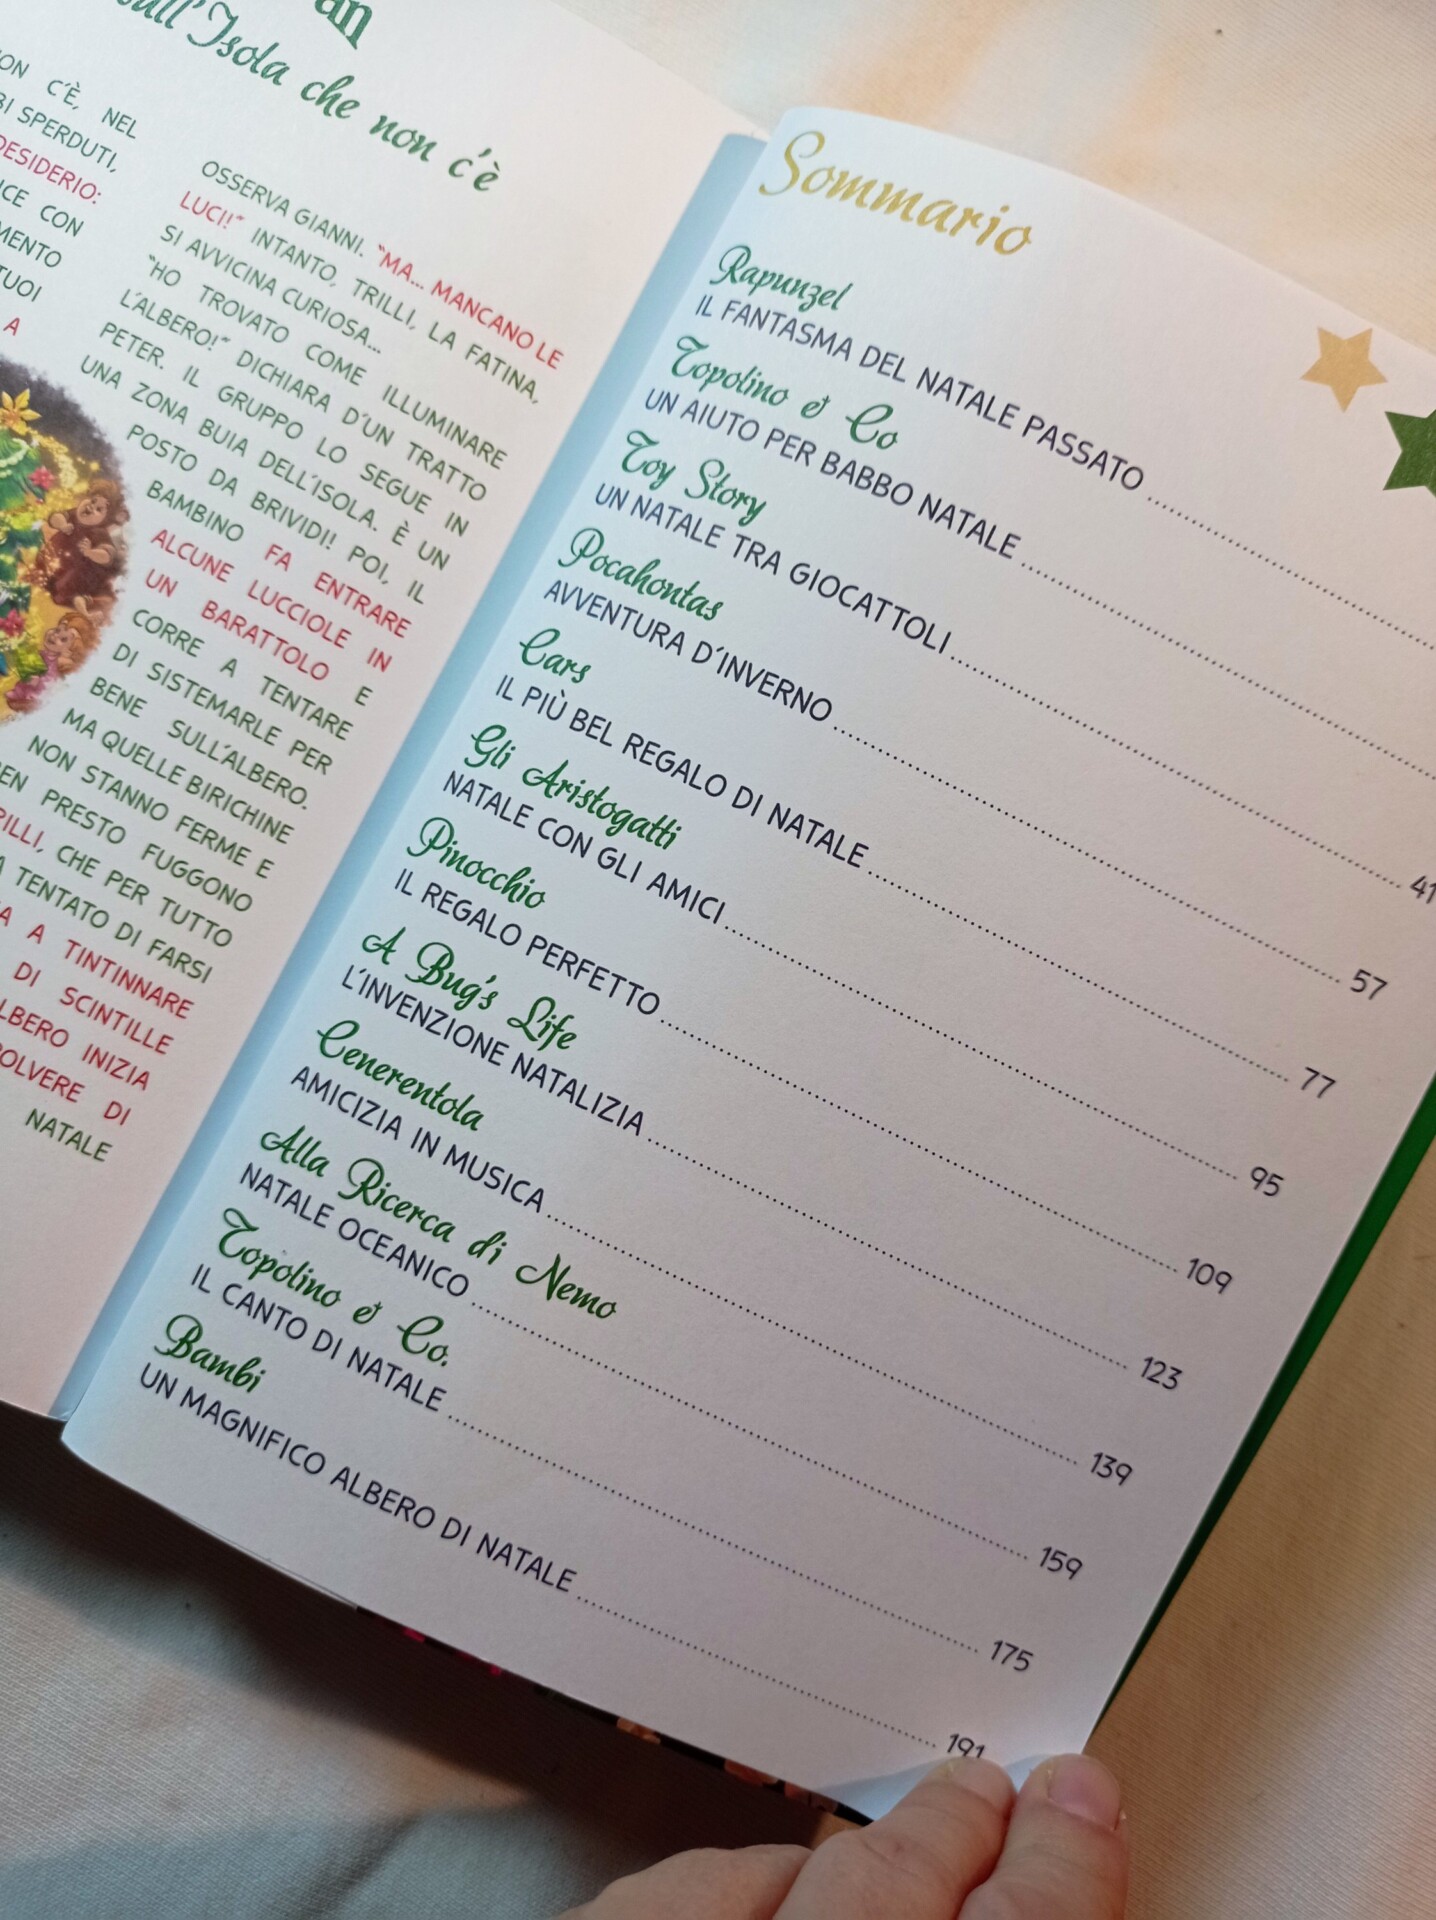 an
sull'Isola che non c'è
ON C'È, NEL
BI SPERDUTI,
DESIDERIO:
CON
TUOI
A
OSSERVA GIANNI. "MA... MANCANO LE
LUCI!" INTANTO, TRILLI, LA FATINA,
SI AVVICINA CURIOSA...
"HO TROVATO COME ILLUMINARE
L'ALBERO!" DICHIARA D'UN TRATTO
PETER. IL GRUPPO LO SEGUE IN
UNA ZONA BUIA DELL'ISOLA. È UN
POSTO DA BRIVIDI! POI, IL
BAMBINO FA ENTRARE
ALCUNE LUCCIOLE IN
UN BARATTOLO E
CORRE A TENTARE
DI SISTEMARLE PER
BENE SULL'ALBERO.
MA QUELLE BIRICHINE
NON STANNO FERME E
BEN PRESTO FUGGONO
RILLI, CHE PER TUTTO
A TENTATO DI FARSI
A A TINTINNARE
DI SCINTILLE
LBERO INIZIA
OLVERE DI
NATALE
Sommario
Rapunzel
IL FANTASMA DEL NATALE PASSATO
Topolino & Co
UN AIUTO PER BABBO NATALE
Toy Story
UN NATALE TRA GIOCATTOLI 41
Pocahontas
AVVENTURA D'INVERNO 57
Cars
IL PIÙ BEL REGALO DI NATALE 77
Gli Aristogatti
NATALE CON GLI AMICI 95
Pinocchio
IL REGALO PERFETTO 109
A Bug's Life
L'INVENZIONE NATALIZIA 123
Cenerentola
AMICIZIA IN MUSICA 139
Alla Ricerca di Nemo
NATALE OCEANICO 159
Topolino & Co.
IL CANTO DI NATALE 175
Bambi
UN MAGNIFICO ALBERO DI NATALE 191